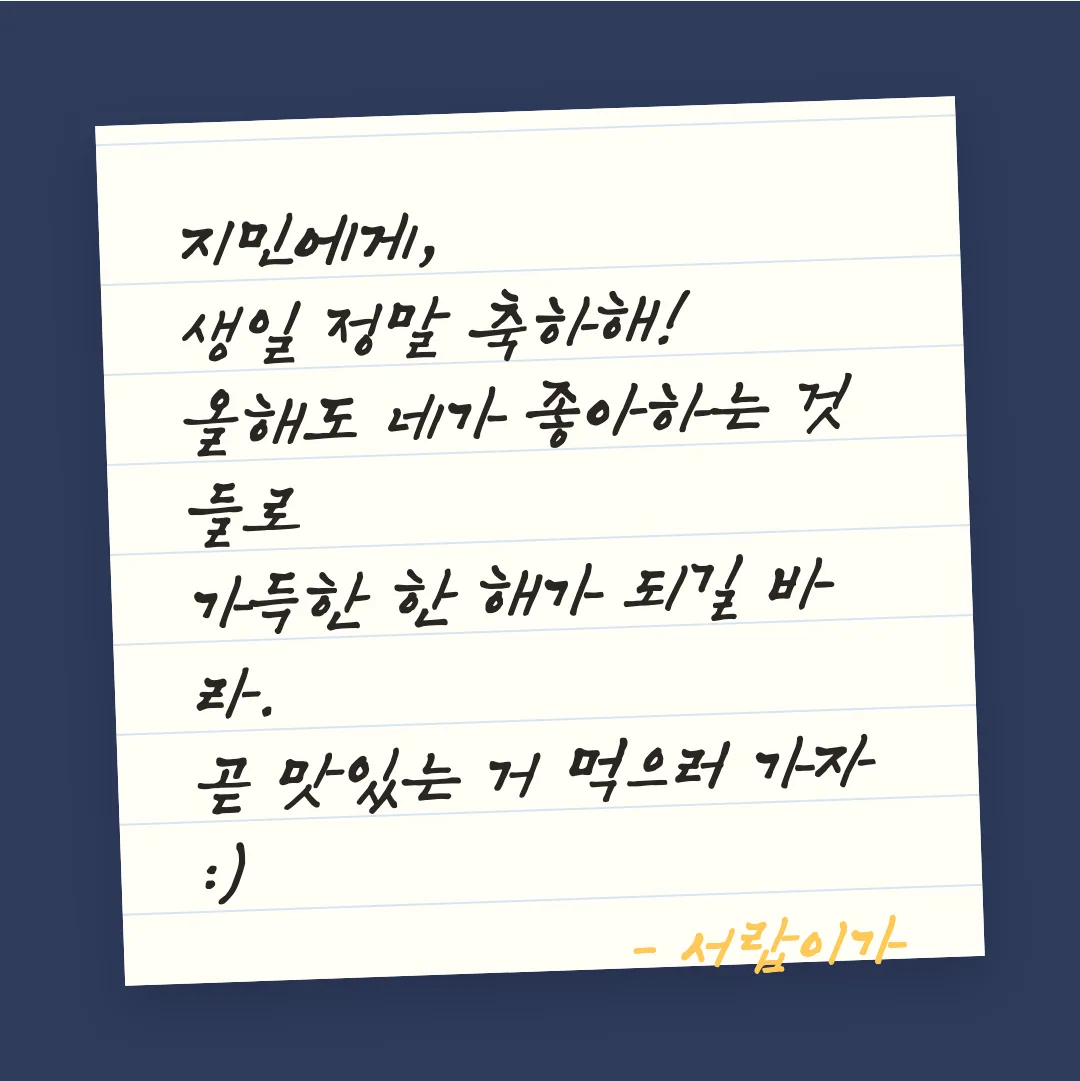 지민에게,
생일 정말 축하해!
올해도 네가 좋아하는 것
들로
가득한 한 해가 되길 바
라.
곧 맛있는 거 먹으러 가자
:)
- 서랍이가